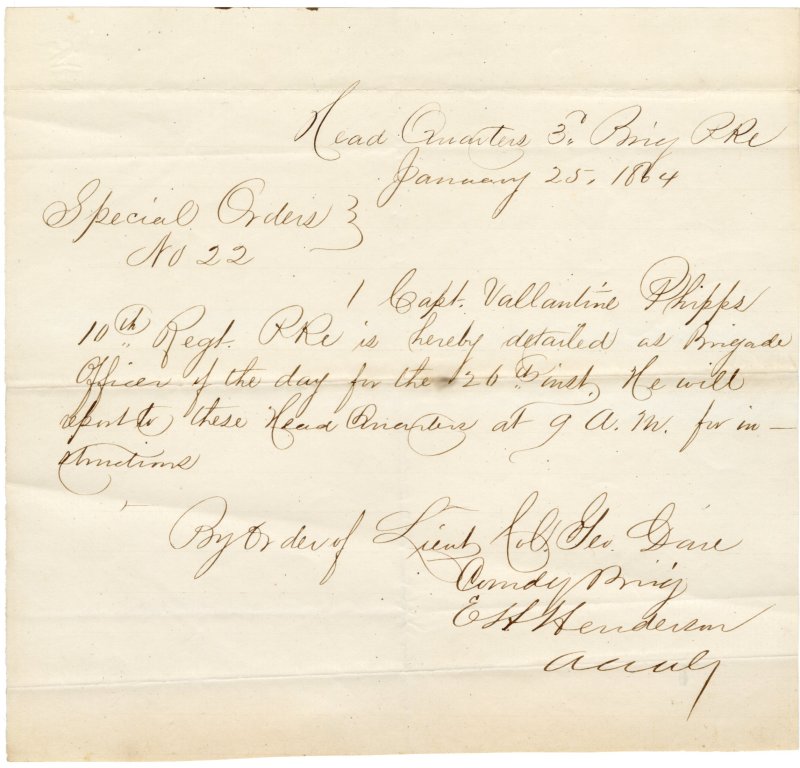 Head Quarters 3d Brig PRC
January 25, 1864
Special Orders }
No 22
1 Capt. Vallantine Phipps
10th Regt. PRC is hereby detailed as Brigade
Officer of the day for the 26th inst, He will
report to these Head Quarters at 9 A.M. for in-
structions
By Order of Lieut. Col. Geo. Dare
Comdg Brig
E H Henderson
AAAG